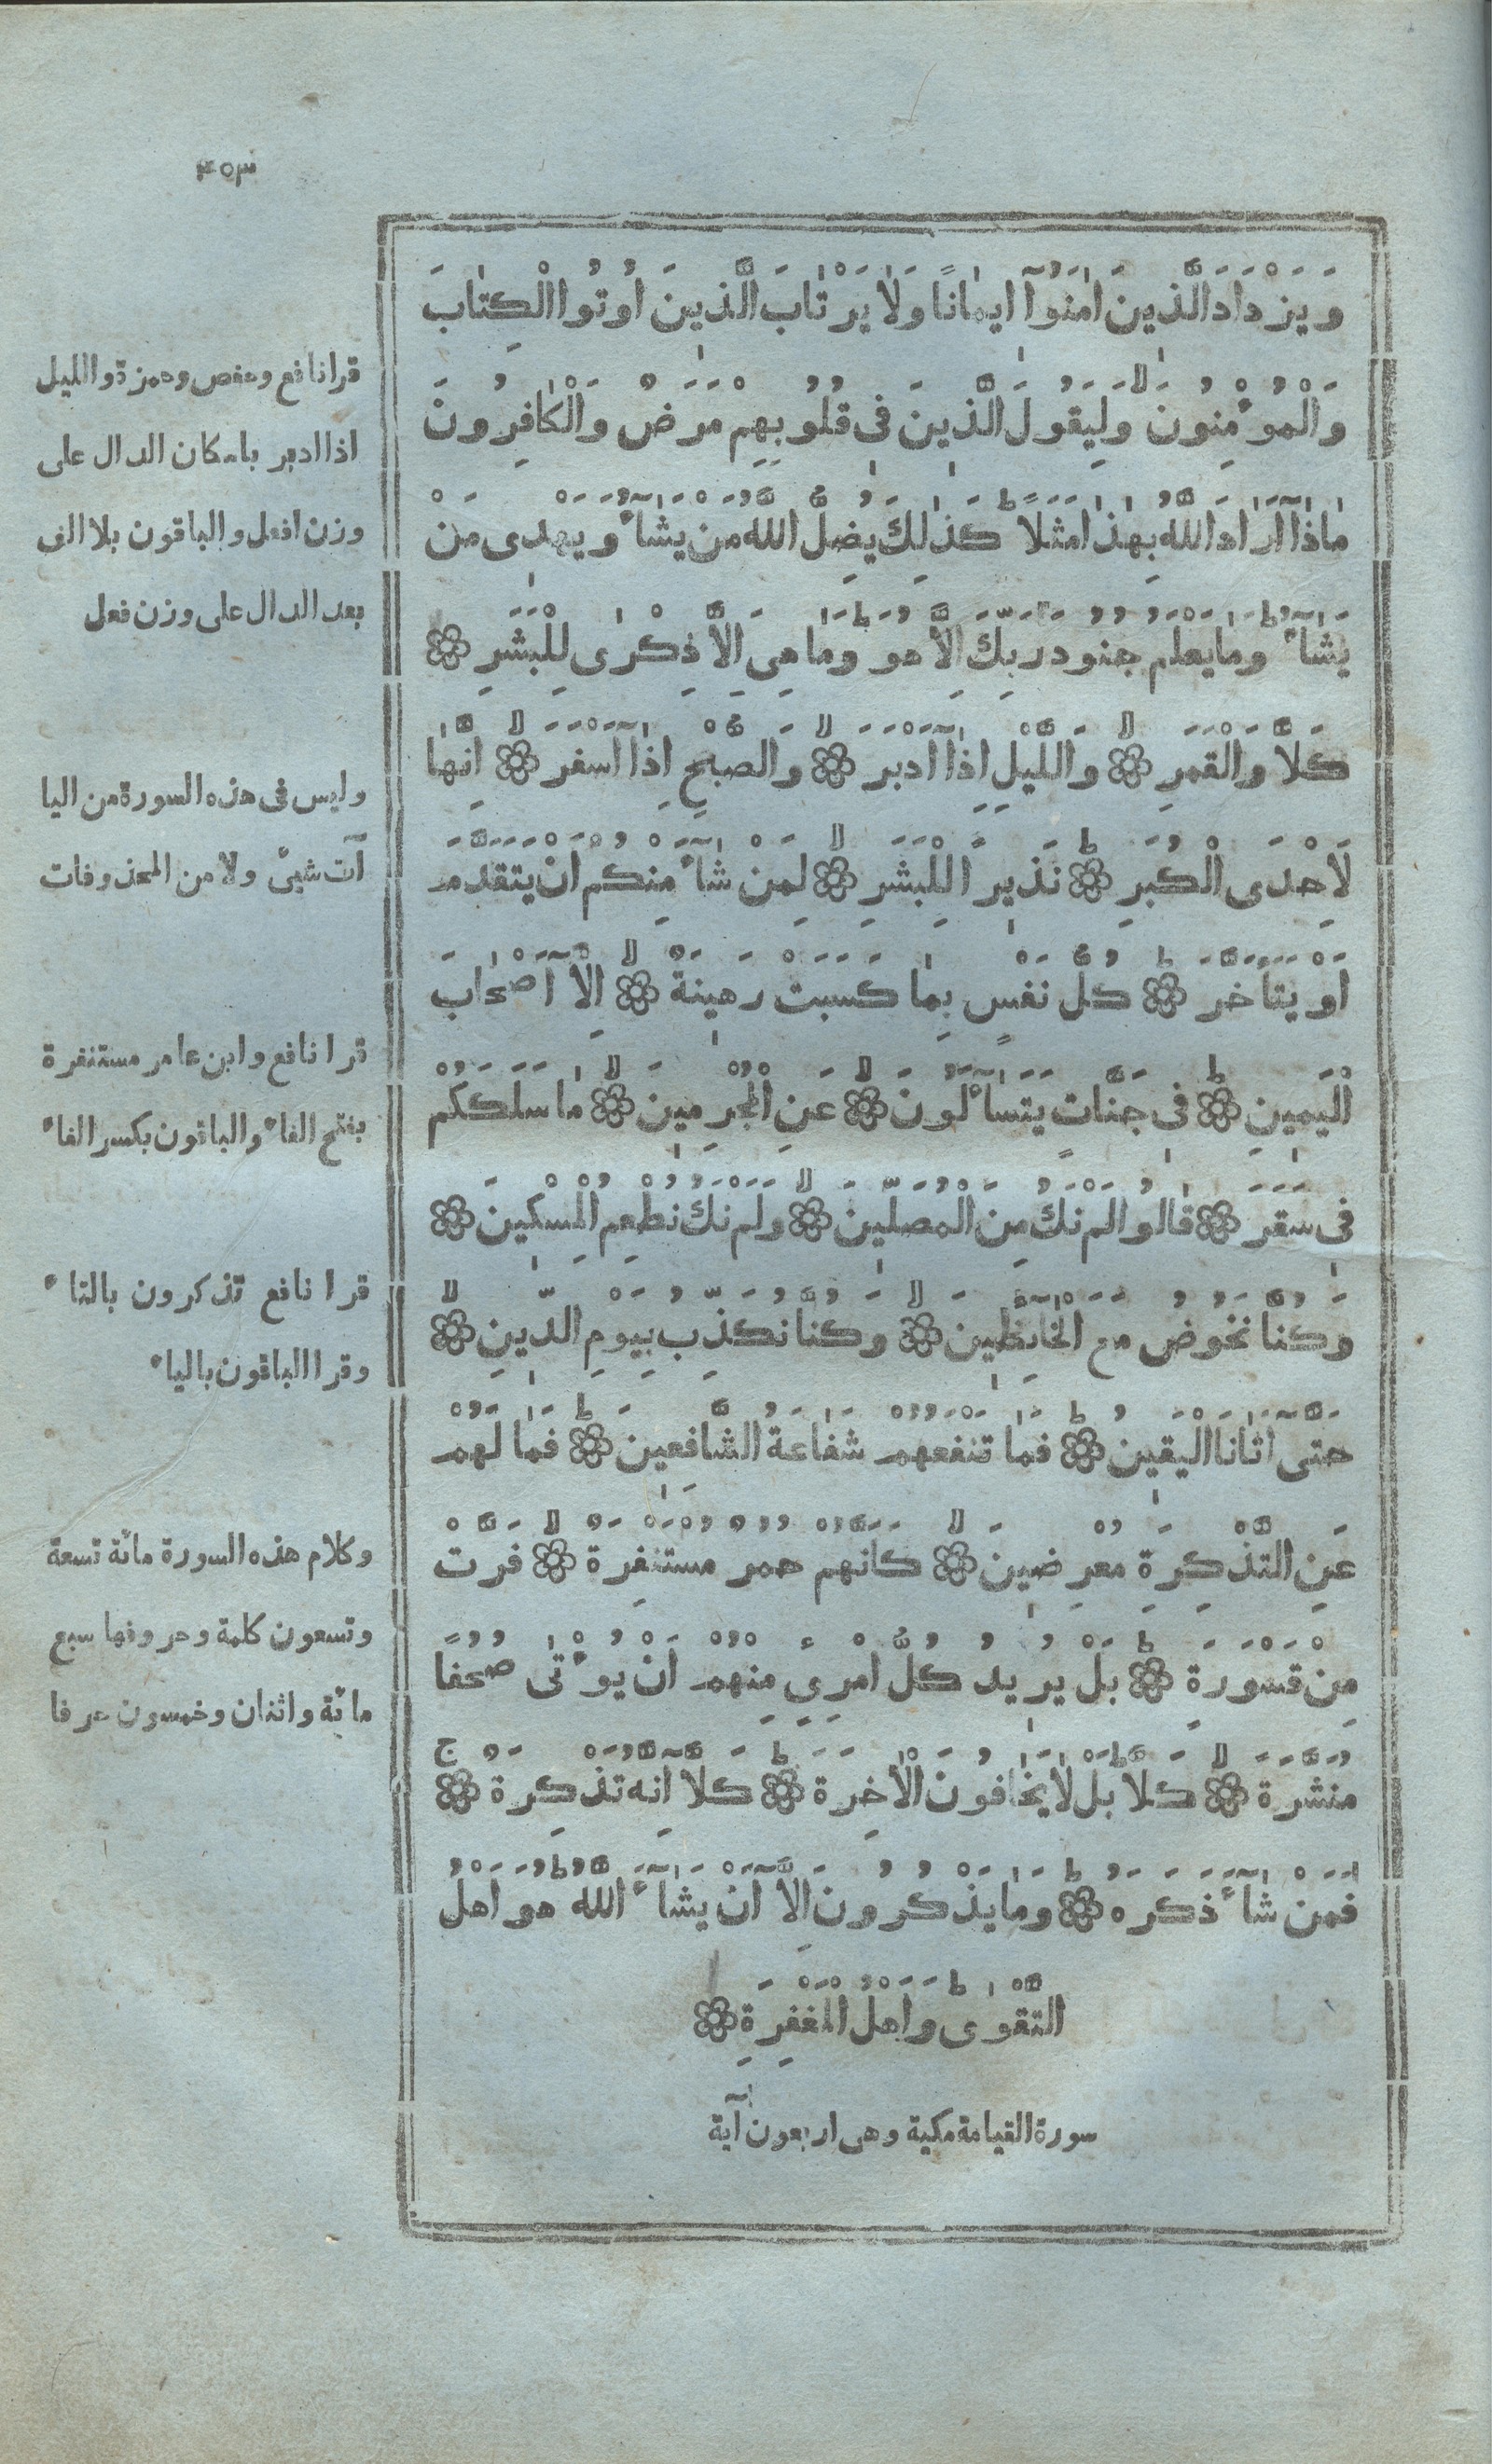 ٤٥٣
وَيَزْدَادَ الَّذِينَ اٰمَنُوٓا اِيمَانًا وَلَا يَرْتَابَ الَّذِينَ اُوتُوا الْكِتَابَ
وَالْمُؤْمِنُونَ وَلِيَقُولَ الَّذِينَ فِى قُلُوبِهِمْ مَرَضٌ وَالْكَافِرُونَ
مَاذَآ اَرَادَ اللَّهُ بِهٰذَا مَثَلًا ۜ كَذٰلِكَ يُضِلُّ اللَّهُ مَنْ يَشَآءُ وَيَهْدِى مَنْ
يَشَآءُ ۜ وَمَا يَعْلَمُ جُنُودَ رَبِّكَ اِلَّا هُوَ ۜ وَمَا هِىَ اِلَّا ذِكْرٰى لِلْبَشَرِ ۞
كَلَّا وَالْقَمَرِ ۞ وَالَّليْلِ اِذْآ اَدْبَرَ ۞ وَالصُّبْحِ اِذَآ اَسْفَرَ ۞ اِنَّهَا
لَاِحْدَى الْكُبَرِ ۞ نَذِيرًا لِلْبَشَرِ ۞ لِمَنْ شَآءَ مِنْكُمْ اَنْ يَتَقَدَّمَ
اَوْ يَتَاَخَّرَ ۞ كُلُّ نَفْسٍ بِمَا كَسَبَتْ رَهِينَةٌ ۞ اِلَّآ اَصْحَابَ
الْيَمِينِ ۞ فِى جَنَّاتٍ يَتَسَآءَلُونَ ۞ عَنِ الْمُجْرِمِينَ ۞ مَا سَلَكَكُمْ
فِى سَقَرَ ۞ قَالُوا لَمْ نَكُ مِنَ الْمُصَلِّينَ ۞ وَلَمْ نَكُ نُطْعِمُ الْمِسْكِينَ ۞
وَكُنَّا نَخُوضُ مَعَ الْخَآئِضِينَ ۞ وَكُنَّا نُكَذِّبُ بِيَوْمِ الدِّينِ ۞
حَتَّىٓ اَتَانَا الْيَقِينُ ۞ فَمَا تَنْفَعُهُمْ شَفَاعَةُ الشَّافِعِينَ ۞ فَمَا لَهُمْ
عَنِ التَّذْكِرَةِ مُعْرِضِينَ ۞ كَاَنَّهُمْ حُمُرٌ مُسْتَنْفِرَةٌ ۞ فَرَّتْ
مِنْ قَسْوَرَةٍ ۞ بَلْ يُرِيدُ كُلُّ امْرِىءٍ مِنْهُمْ اَنْ يُؤْتٰى صُحُفًا
مُنَشَّرَةً ۞ كَلَّا ۜ بَلْ لَا يَخَافُونَ الْاٰخِرَةَ ۞ كَلَّآ اِنَّهُ تَذْكِرَةٌ ۞
فَمَنْ شَآءَ ذَكَرَهُ ۞ وَمَا يَذْكُرُونَ اِلَّآ اَنْ يَشَآءَ اللَّهُ ۜ هُوَ اَهْلُ
التَّقْوٰى وَاَهْلُ الْمَغْفِرَةِ ۞
سورة القيامة مكية وهى اربعون آية
قرا نافع وحفص وحمزة والليل
اذا ادبر باسكان الدال على
وزن افعل والباقون بلا الف
بعد الدال على وزن فعل
وليس فى هذه السورة من اليا
آت شىٔ ولا من المحذوفات
قرا نافع وابن عامر مستنفرة
بفتح الفاء والباقون بكسر الفاء
قرا نافع تذكرون بالتاء
وقرا الباقون بالياء
وكلام هذه السورة مائة تسعة
وتسعون كلمة وحروفها سبع
مائة واثنان وخمسون حرفا